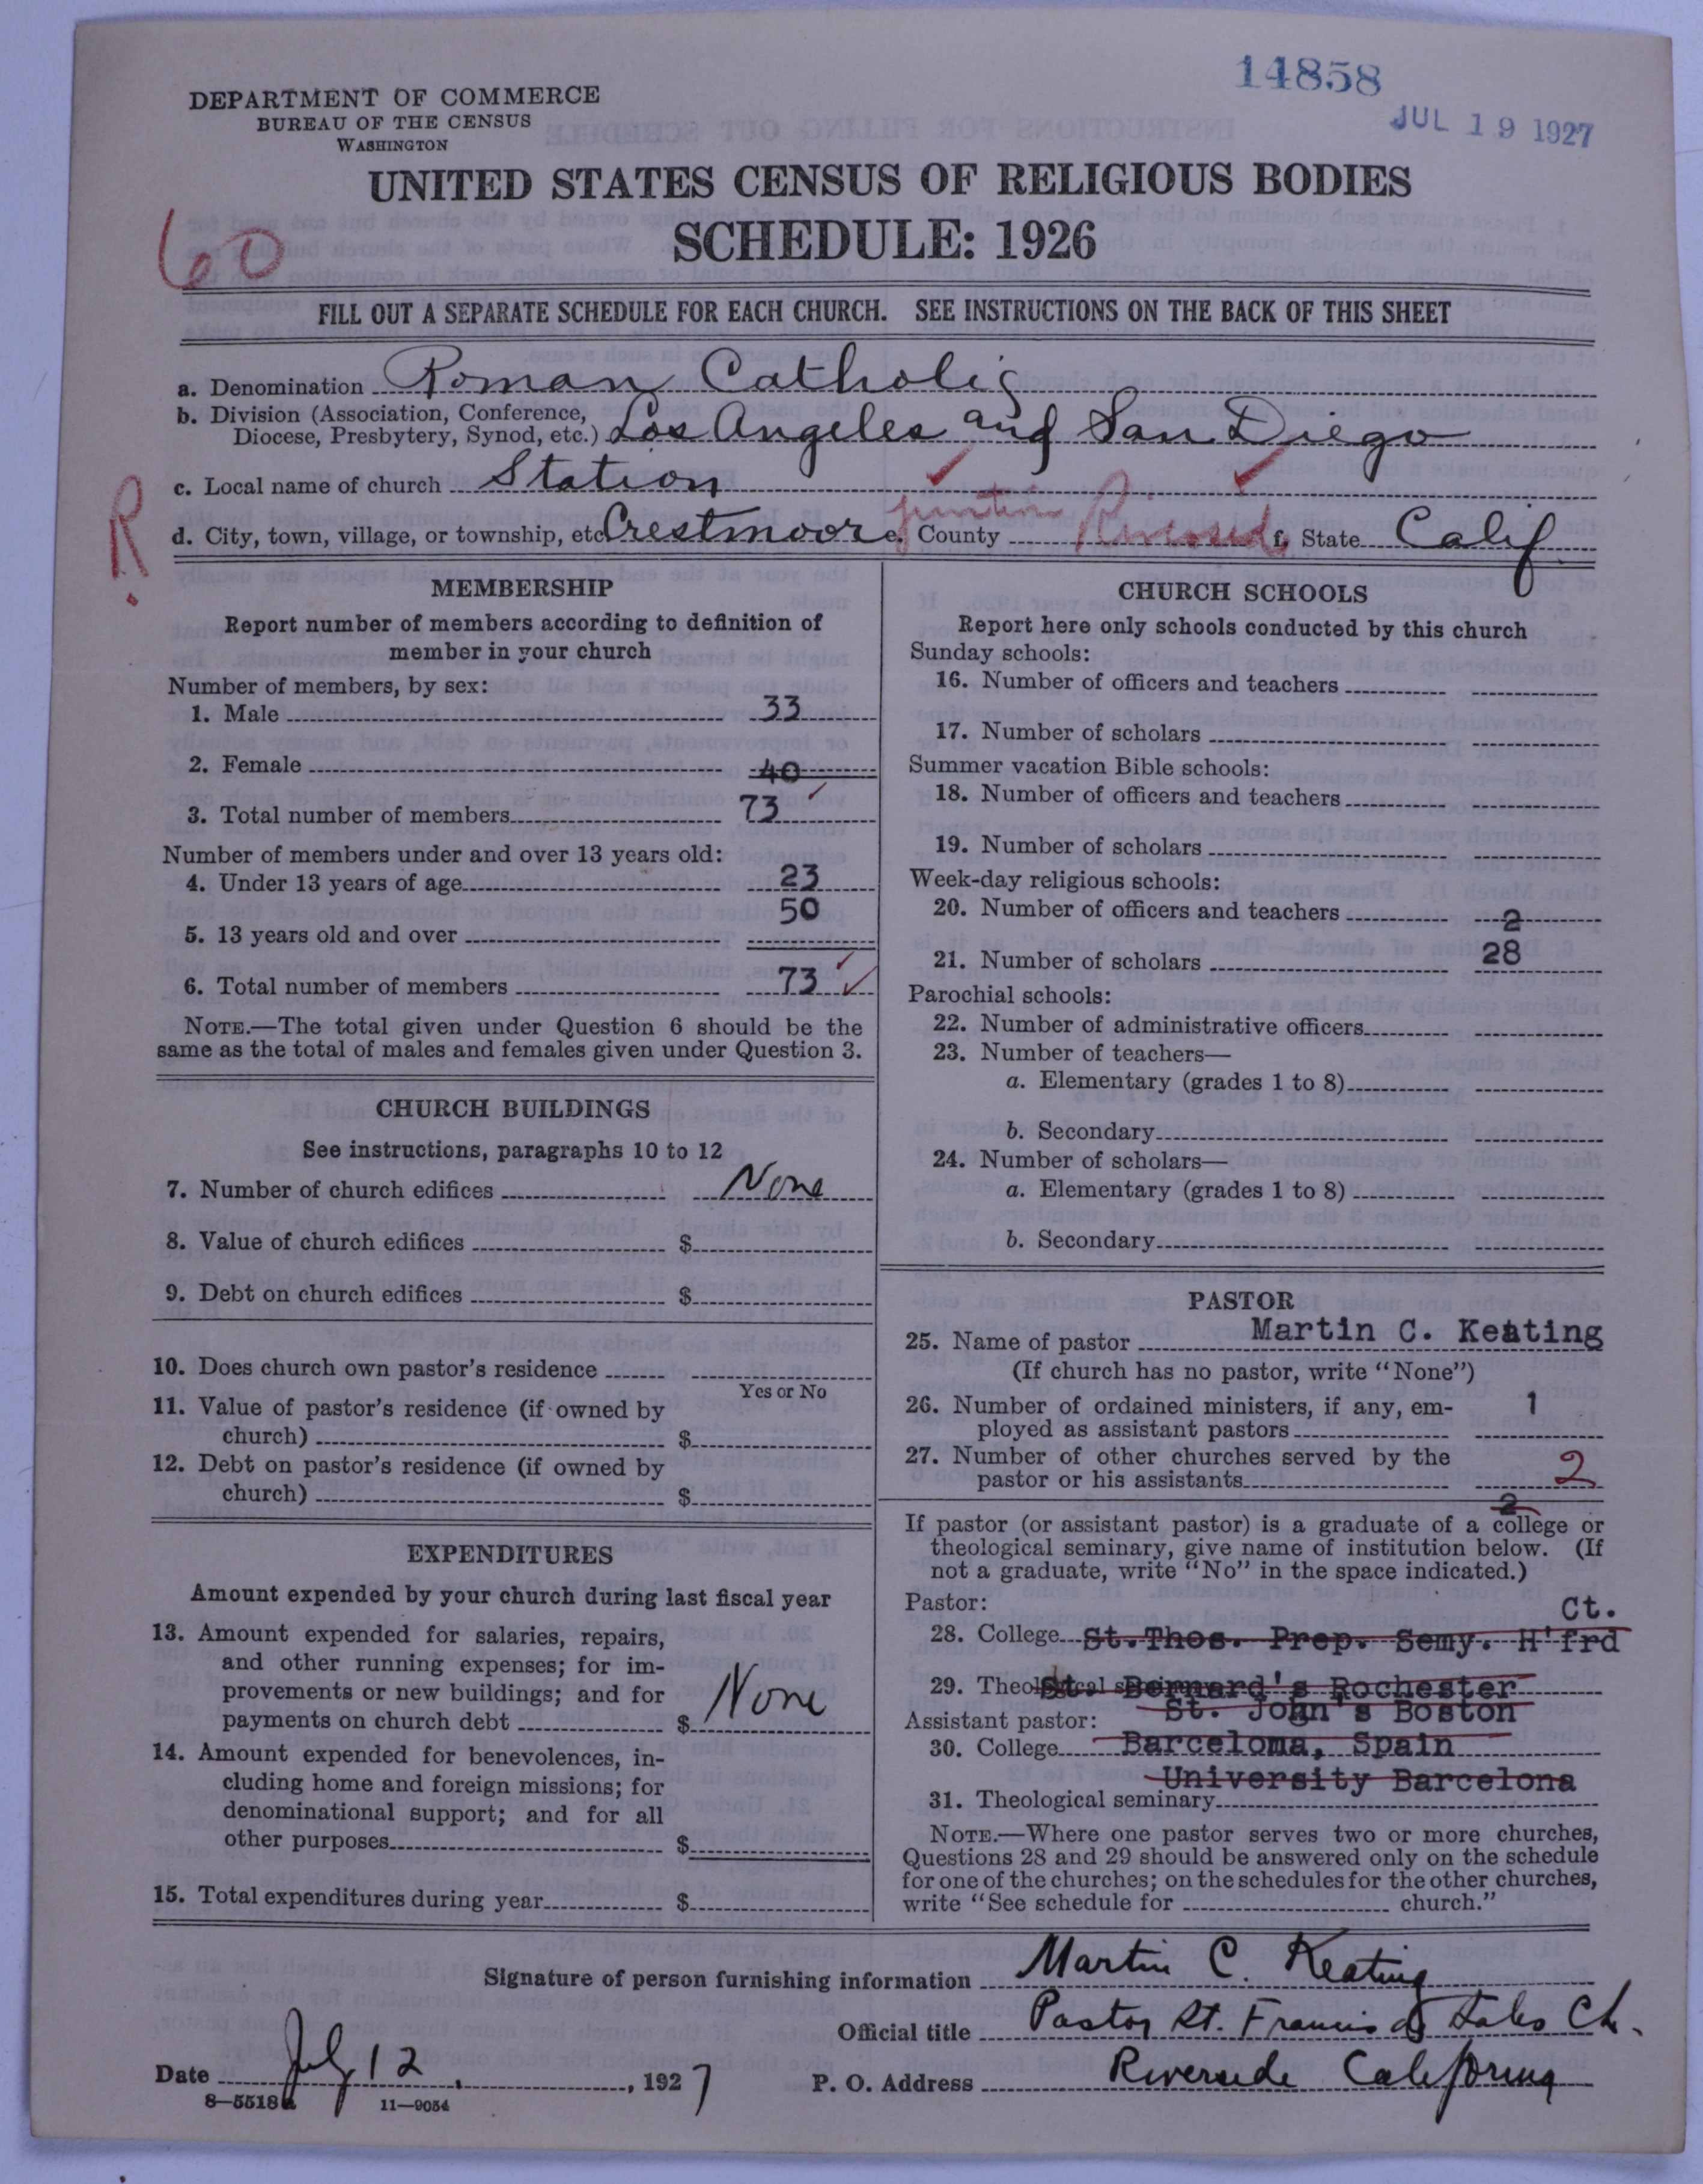 14858
JUL 19 1927
DEPARTMENT OF COMMERCE
BUREAU OF THE CENSUS
WASHINGTON
UNITED STATES CENSUS OF RELIGIOUS BODIES
SCHEDULE: 1926
60
FILL OUT A SEPARATE SCHEDULE FOR EACH CHURCH. SEE INSTRUCTIONS ON THE BACK OF THIS SHEET
a. Denomination Roman Catholic
b. Division (Association, Conference,
Diocese, Presbytery, Synod, etc.) Los Angeles and San Diego
c. Local name of church Station
R.
d. City, town, village, or township, etc. Crestmoore e. County Riverside f. State Calif.
MEMBERSHIP
Report number of members according to definition of
member in your church
Number of members, by sex:
1. Male 33
2. Female 40
3. Total number of members 73
Number of members under and over 13 years old:
4. Under 13 years of age 23
50
5. 13 years old and over
6. Total number of members 73
NOTE.—The total given under Question 6 should be the
same as the total of males and females given under Question 3.
CHURCH BUILDINGS
See instructions, paragraphs 10 to 12
7. Number of church edifices None
8. Value of church edifices $
9. Debt on church edifices $
10. Does church own pastor's residence
Yes or No
11. Value of pastor's residence (if owned by
church) $
12. Debt on pastor's residence (if owned by
church) $
EXPENDITURES
Amount expended by your church during last fiscal year
13. Amount expended for salaries, repairs,
and other running expenses; for im-
provements or new buildings; and for
payments on church debt $ None
14. Amount expended for benevolences, in-
cluding home and foreign missions; for
denominational support; and for all
other purposes $
15. Total expenditures during year $
CHURCH SCHOOLS
Report here only schools conducted by this church
Sunday schools:
16. Number of officers and teachers
17. Number of scholars
Summer vacation Bible schools:
18. Number of officers and teachers
19. Number of scholars
Week-day religious schools:
20. Number of officers and teachers 2
21. Number of scholars 28
Parochial schools:
22. Number of administrative officers
23. Number of teachers—
a. Elementary (grades 1 to 8)
b. Secondary
24. Number of scholars—
a. Elementary (grades 1 to 8)
b. Secondary
PASTOR
25. Name of pastor Martin C. Keating
(If church has no pastor, write "None")
26. Number of ordained ministers, if any, em-
ployed as assistant pastors 1
27. Number of other churches served by the
pastor or his assistants 2
2
If pastor (or assistant pastor) is a graduate of a college or
theological seminary, give name of institution below. (If
not a graduate, write "No" in the space indicated.)
Pastor:
Ct.
28. College St.Thos. Prep. Semy. H'frd
29. Theological seminary St. Bernard's Rochester
St. John's Boston
Assistant pastor:
30. College Barceloma, Spain
University Barcelona
31. Theological seminary
NOTE.—Where one pastor serves two or more churches,
Questions 28 and 29 should be answered only on the schedule
for one of the churches; on the schedules for the other churches,
write "See schedule for church."
Signature of person furnishing information Martin C. Keating
Official title Pastor St. Francis d Sales Ch.
Date July 12, 1927
P. O. Address Riverside California
8—5518a 11—9054